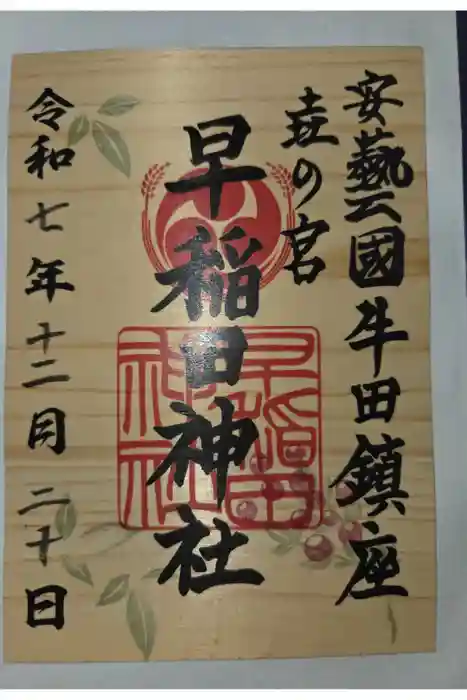 安藝國牛田鎮座
壵の宮
早稲田神社
早稲田神社
令和七年十二月二十日